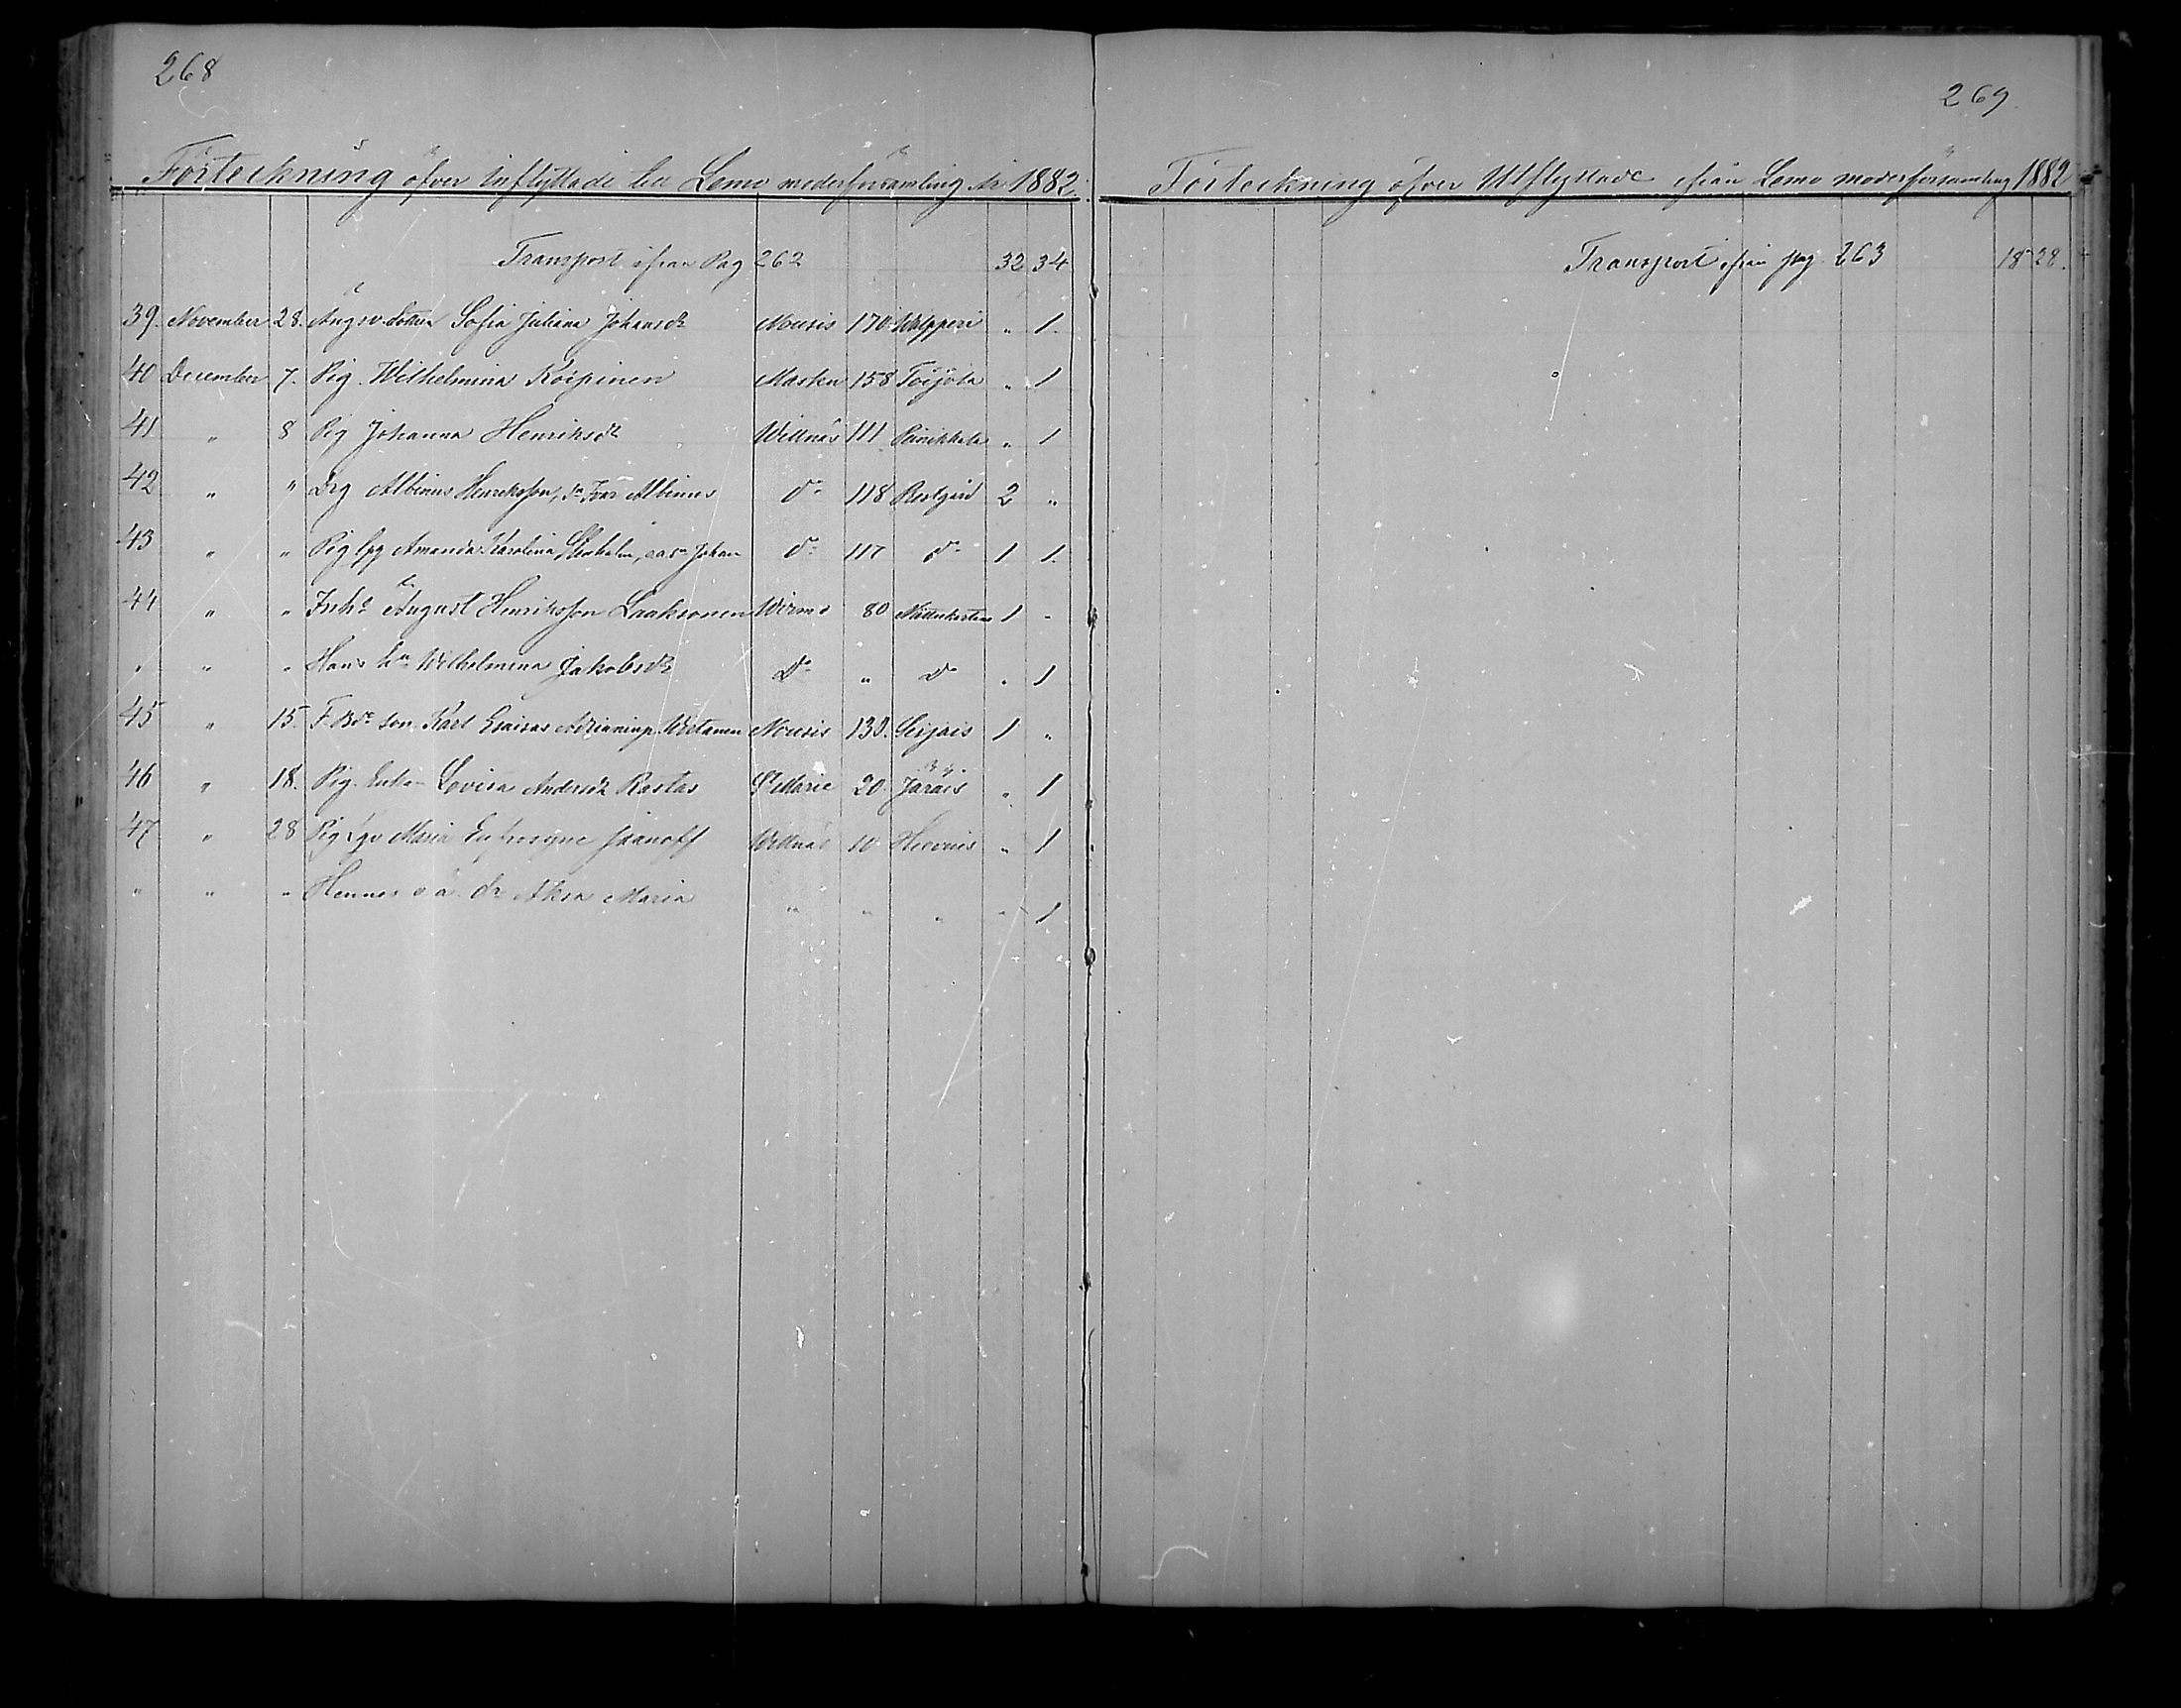 268
Förteckning öfver Inflyttade till Lemo moderförsamling År 1882
Transport ifrån Pag 262 32 34
39. November 28. Sofia Juliana Johansdr Nousis 170 Walpperi " 1.
40 December 7. Pig. Wilhelmina Koipinen Masku 158 Toijola " 1
41 " 8 Pig Johanna Henriksdr Willnäs 111 " 1
42 " " Drg Albinus Henriksson, Albinus do 118 Prestgård 2 "
43 " " Pig Amanda Karolina Johan do 117 do 1 1.
44 " " Inhs August Henriksson Laaksonen Wirmo 80 1 -
" " " Hans hu Wilhelmina Jakobsdr Do " Do " 1
45 " 15. F. Bds son Karl Esaias Nousis 130. 1 "
46 " 18. Pig. Enkan Lovisa Andersdr Rostas St Marie 20 Järäis " 1
47 " 28 Pig Maria Eufrosyne Willnäs " 1
" " " Hennes o ä dr Maria " " " " 1
269.
Förteckning öfver Utflyttade ifrån Lemo moderförsamling 1882
Transport ifrån pag. 263 18 28.